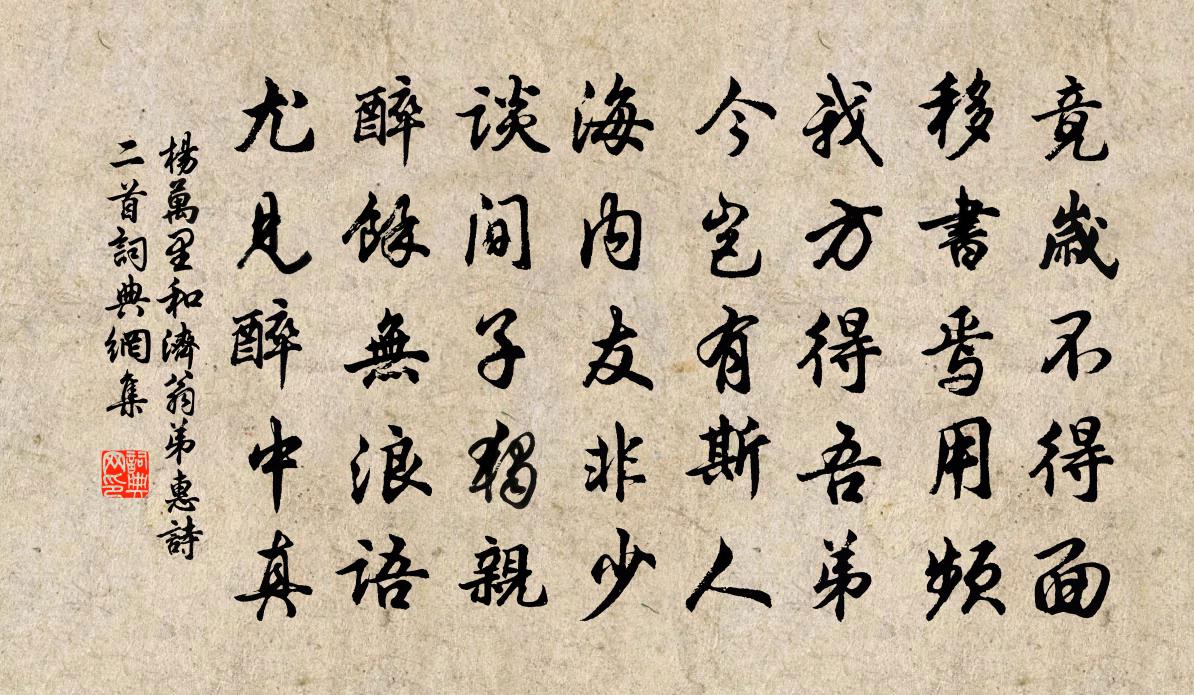 竟歲不得面
移書焉用頻
我方得吾弟
今豈有斯人
海内友非少
談間子獨親
醉餘無浪語
尤見醉中真
楊萬里和濟翁弟惠詩
二首詞典網集
詞典
网印